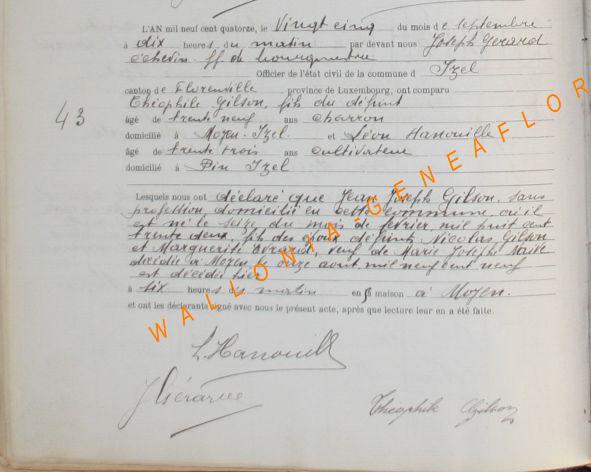 L'AN mil neuf cent quatorze, le Vingt cinq du mois de septembre
à dix heures du matin par devant nous Joseph Gerard
échevin ff de bourgmestre
Officier de l'état civil de la commune d Izel
canton de Florenville province de Luxembourg, ont comparu
43
Théophile Gilson, fils du défunt
âgé de trente neuf ans charron
domicilié à Moyen-Izel et Léon Hanouille
âgé de trente trois ans cultivateur
domicilié à Pin Izel
Lesquels nous ont déclaré que Jean Joseph Gilson, sans
profession, domicilié en cette commune, où il
est né le seize du mois de février mil huit cent
trente deux, fils des époux défunts Nicolas Gilson
et Marguerite veuf de Marie Joseph
décédée à Moyen le onze août mil neuf cent neuf
est décédé hier
à six heures du matin en maison à Moyen.
et ont les déclarants signé avec nous le présent acte, après que lecture leur en a été faite.
L. Hanouille
J Gérard
Théophile Gilson
WALLONIA-GENEAFLOR